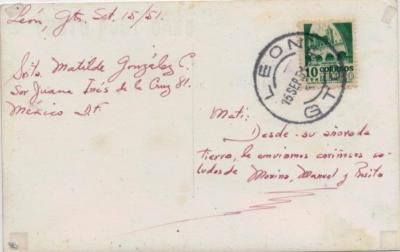 León, Gto. Set. 15/51.
Srita. Matilde González C.
Sor Juana Inés de la Cruz 81.
México D.F.
LEON
GTO
15 SEP
10 CORREOS
Mati:
Desde su añorada
tierra, le enviamos cariñosos sa-
ludos de Marina, Manuel y Rosita